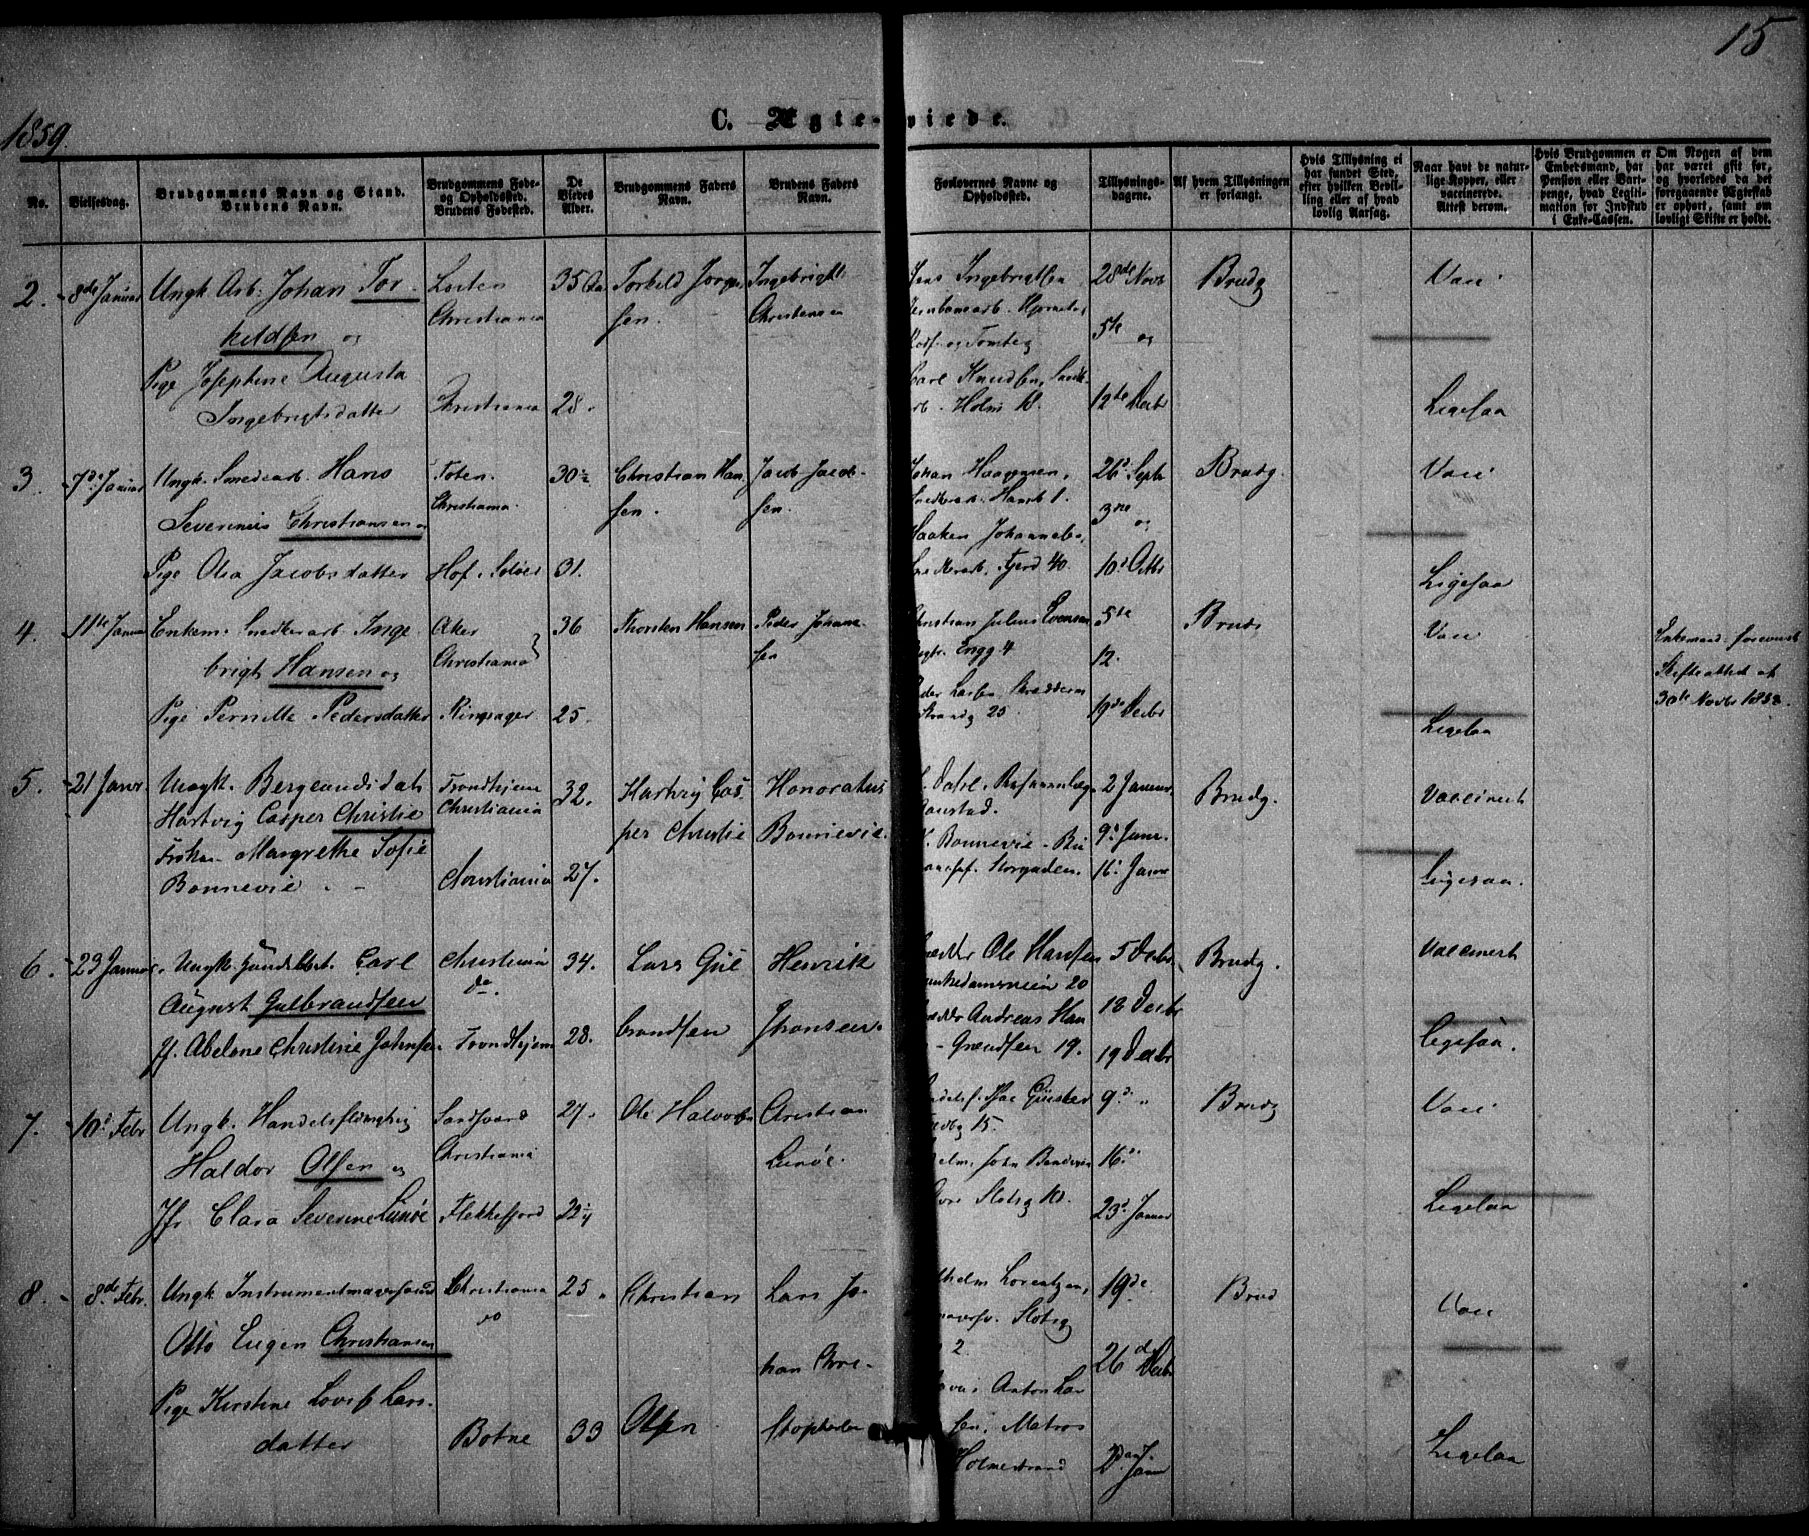 15
1859.
C. Ægteviede.
No.
Vielsesdag.
Brudgommens Navn og Stand.
Brudens Navn.
Brudgommens Føde-
og Opholdssted.
Brudens Fødested.
De
Viedes
Alder.
Brudgommens Faders
Navn.
Brudens Faders
Navn.
Forlovernes Navne og
Opholdssted.
Tillysnings-
dagene.
Af hvem Tillysningen
er forlangt.
Hvis Tillysning ei
har fundet Sted,
efter hvilken Bevil-
ling eller af hvad
lovlig Aarsag.
Naar havt de natur-
lige Kopper, eller
vaccinerede.
Attest derom.
Hvis Brudgommen er
Embedsmand, har
Pension eller Vart-
penge, hvad Legiti-
mation for Indskud
i Enke-Cassen.
Om Nogen af dem
har været gift før,
og hvorledes da det
foregaaende Ægteskab
er ophørt, samt om
lovligt Skifte er holdt.
2.
8de Januar
Ungk. Arb: Johan Tor-
keldsen og
Pige Josephine Augusta
Ingebrigtsdatter
Christiania
Christiania
35
28.
Torkeld Jørgen
sen.
Ingebrigt
Christensen
Jens Ingebrigtsen
Carl Knudsen,
28de Novb
5te og
12te Decbr
Brudg
Vacc
Ligesaa
3.
7de Januar
Ungk. Smedearb. Hans
Severinus Christiansen og
Pige Olea Jacobsdatter
Toten.
Christiania.
Hof i Soløer
30½
31.
Christian Han
sen.
Jacob Jacob-
sen.
Haaken Johannes
26d Septb
3ne og
10d Octbr
Brudg.
Vacc
Ligesaa
4.
11te Januar
Enkem. Snedkerarb. Inge
brigt Hansen og
Pige Pernille Pedersdatter
Aker
Christiania
Ringsager
36
25.
Thorsten Hansen
Peder Johane-
sen
Christian Julius Evensen
Engg 4
Peder Larsen
Strandg 25
5te
12.
19de Decbr
Brudg
Vacc
Ligesaa
Enkemand. foreviist
Skifteattest af
30te Novbr 1858.
5.
21 Janr.
Ungk. Bergcandidat
Hartvig Casper Christie
Frøken Margrethe Sofie
Bonnevie
Trondhjem
Christiania
Christiania
32.
27.
Hartvig Cas
per Christie
Honoratus
Bonnevie.
Bonnevie
Storgaden.
2 Januar.
9. Janr.
16. Janr
Brudg.
Vaccineret
Ligesaa.
6.
23 Januar.
Ungk. Handelsbet. Carl
August Gulbrandsen
Jf. Abelone Christine Johnsen
Christiania
do.
Trondhjem
34.
28.
Lars Gul
brandsen
Henrik
Jhonsen.
Ole Hansen
Andreas Han
Grændsen 19.
5 Decbr.
13 Decbr
19 Decbr
Brudg.
Vaccineret
Ligesaa.
7.
10d Febr
Ungk. Handelsfuldmægtig
Haldor Olsen og
Jfr Clara Severine Lunöe
Christiania
Flekkefjord
27.
22½
Ole Halvorsen
Christian
Lunöe.
15.
Slotsg
9d "
16d
23d Januar
Brudg
Vacc
Ligesaa
8.
8de Febr.
Ungk Instrumentmagersvend
Otto Eugen Christiansen
Pige Kirstine Lovise Lars-
datter
Christiania
do
Botne
25.
33
Christian
Olsen
Lars Jo-
han Chri-
stophersen
Lorentzen,
Slotsg
2.
Anton Lar
sen, Matros
Holmestrand
19de
26d Decbr
2den Janr
Brud
Vacc
Ligesaa